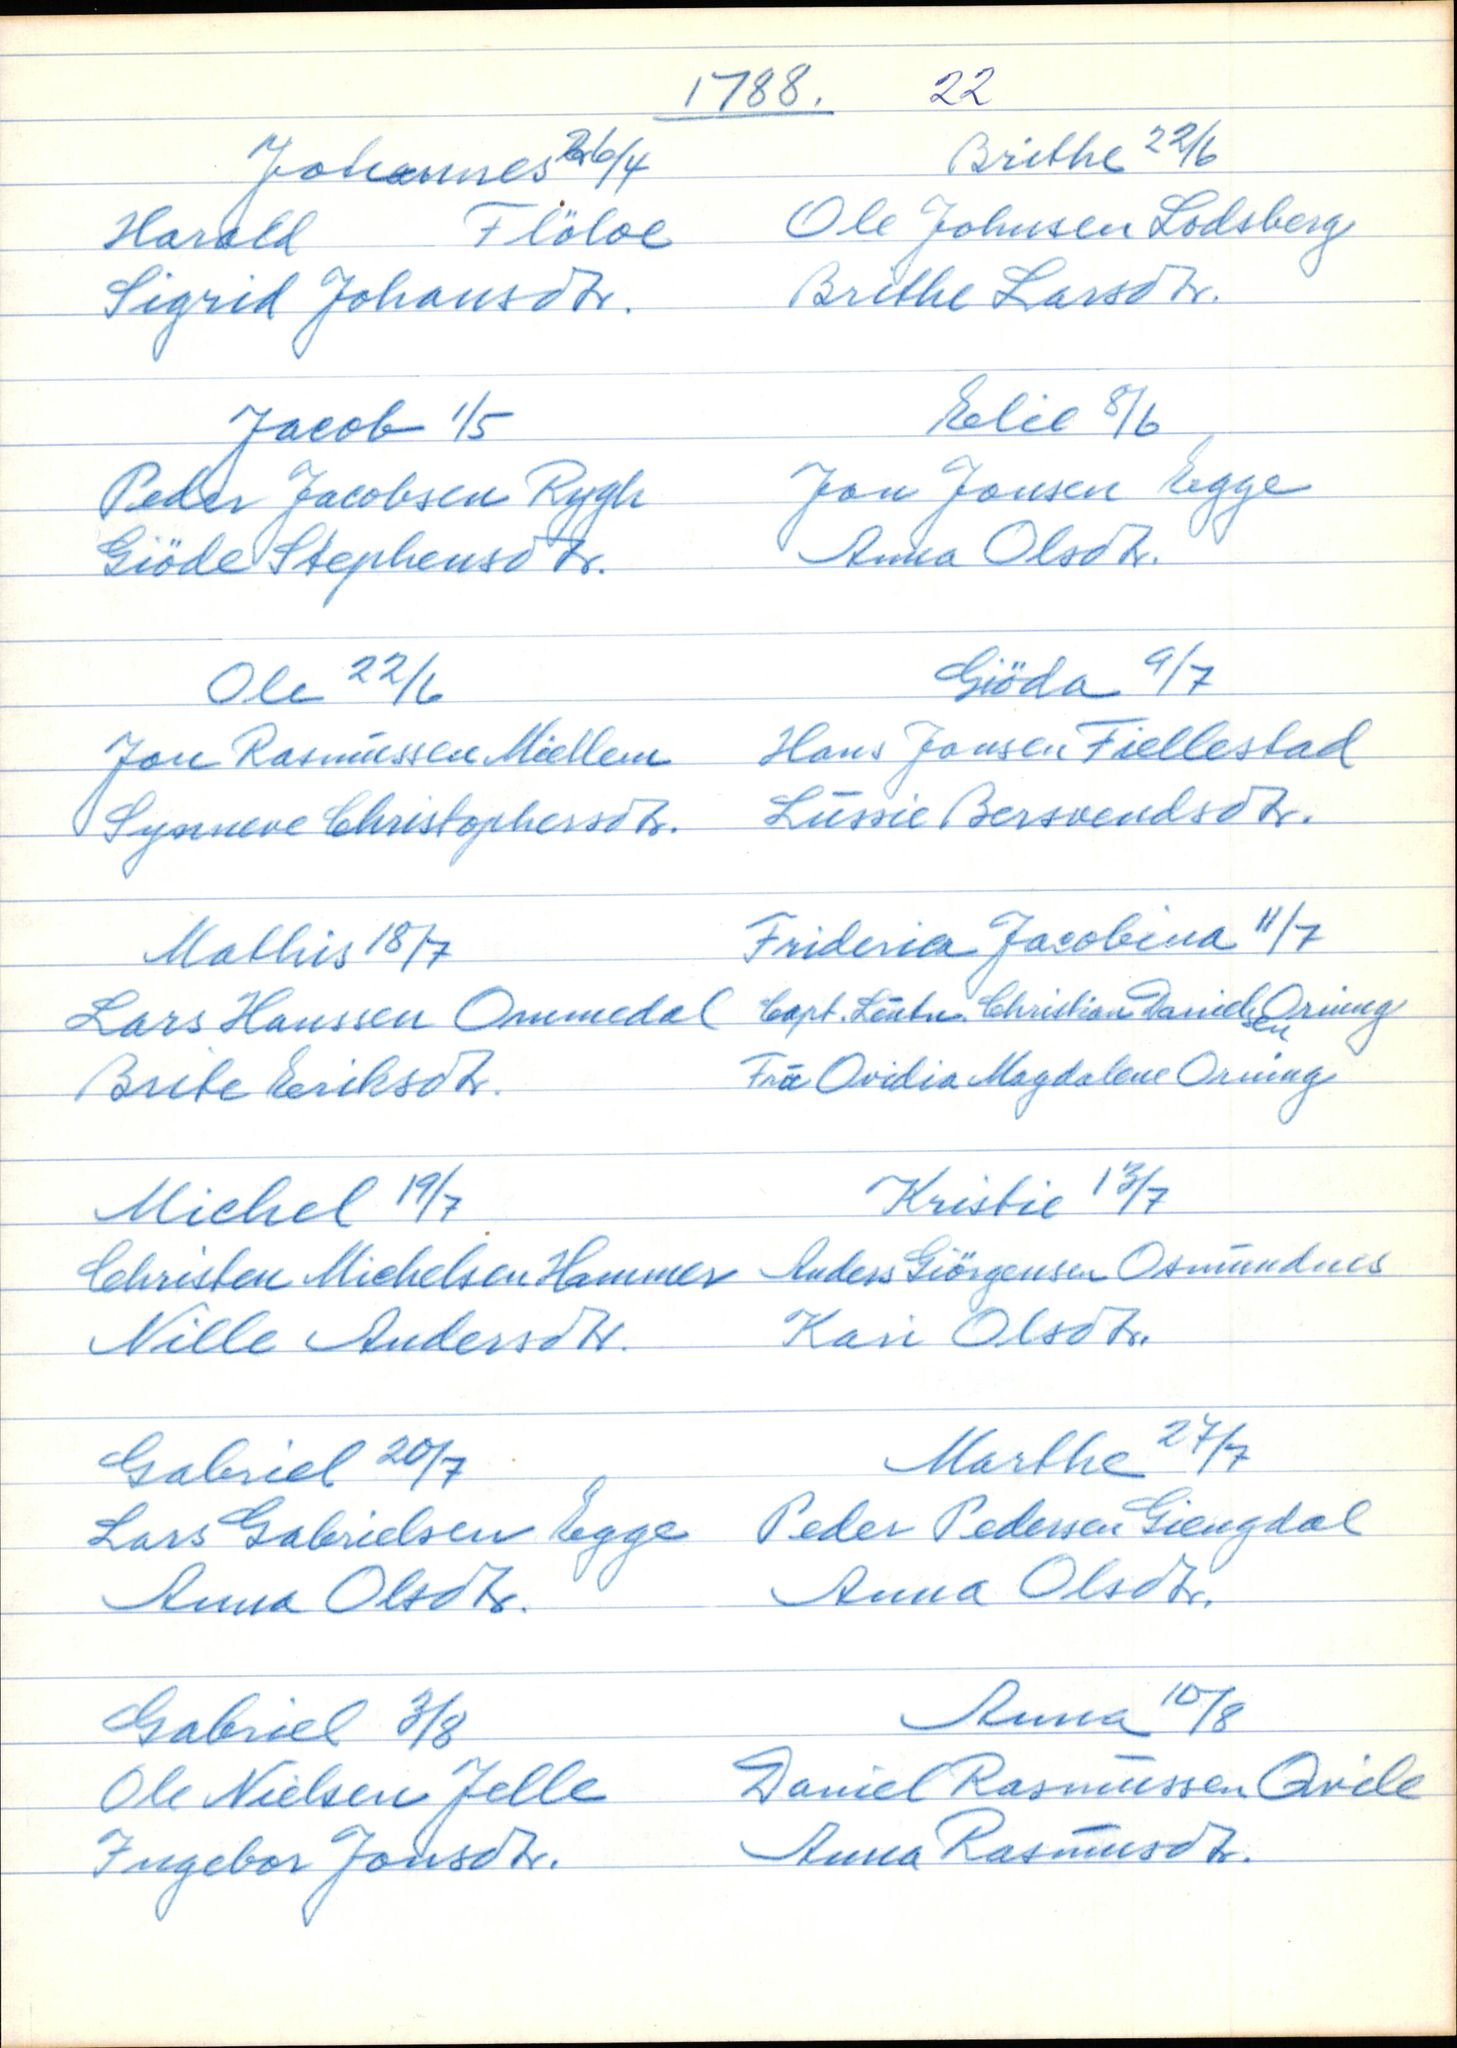 1788. 22
Johannes 26/4
Harald Flöloe
Sigrid Johansdtr.
Jacob 1/5
Peder Jacobsen Rygh
Giöde Stephensdtr.
Ole 22/6
Jon Rasmussen Miellem
Synneve Christophersdtr.
Mathis 18/7
Lars Hanssen Ommedal
Brite Eriksdtr.
Michel 19/7
Christen Michelsen Hammer
Nille Andersdtr.
Gabriel 20/7
Lars Gabrielsen Egge
Anna Olsdtr.
Gabriel 3/8
Ole Nielsen Jelle
Ingebor Jonsdtr.
Brithe 22/6
Ole Johnsen Lodsberg
Brithe Larsdtr.
Elie 8/6
Jon Jonsen Egge
Anna Olsdtr.
Giöda 9/7
Hans Jonsen Fiellestad
Lussie Bersvendsdtr.
Friderica Jacobina 11/7
Capt. Leutn. Christian Danielsen Orning
Fru Ovidia Magdalene Orning
Kristie 13/7
Anders Giörgensen Osmundnes
Kari Olsdtr.
Marthe 27/7
Peder Pedersen Giengdal
Anna Olsdtr.
Anna 10/8
Daniel Rasmussen Qvile
Anna Rasmusdtr.